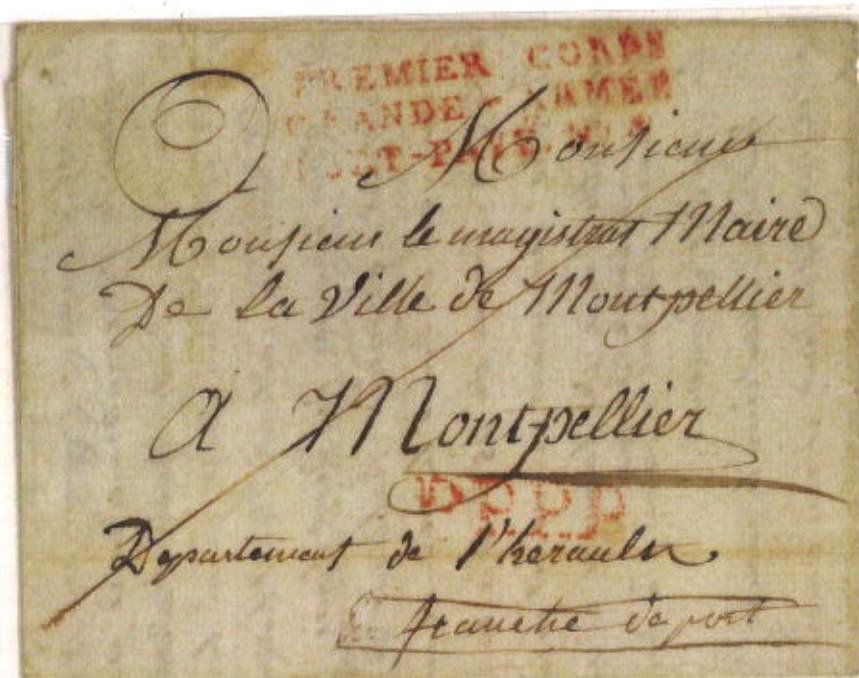 PREMIER CORPS
GRANDE-ARMEE
PORT-PAYE
A Monsieur
Monsieur le magistrat Maire
De La Ville de Montpellier
A Montpellier
P.P.P.P
Departement de l'herault
franche de port